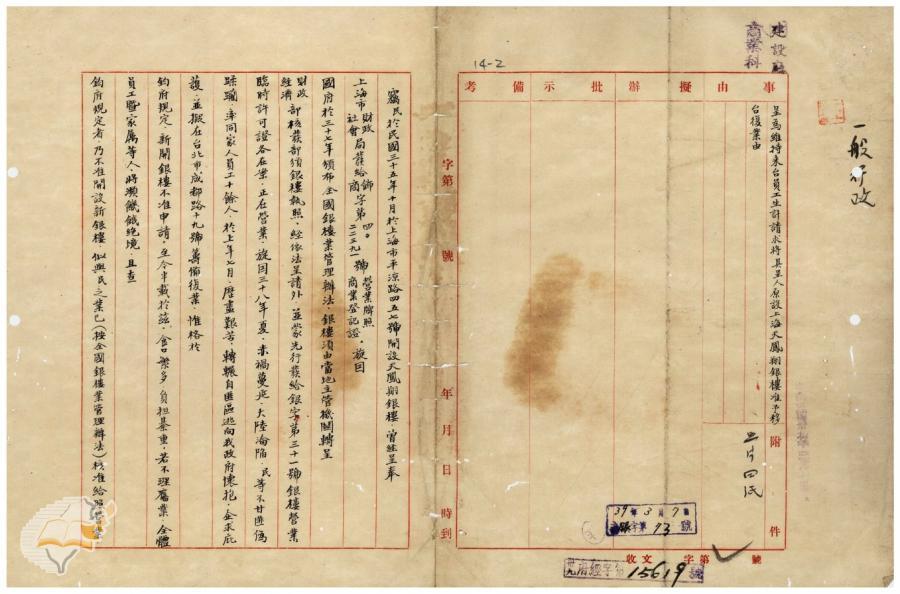 建設廳
商業科
一般行政
14-2
事由
擬辦
批示
備考
呈為維持來台員工生計請求將具呈人原設上海天鳳翔銀樓准予移
台復業由
附件
39年3月7日
字第73號
收文 字第 號
府經字第15619號
字第 號
年 月 日 時到
竊民於民國三十五年十月於上海市平涼路四五七號開設天鳳翔銀樓，曾經呈奉
上海市財政社會局發給飾商字第四〇二二三九一號營業牌照商業登記證，旋因
國府於三十七年頒布全國銀樓業管理辦法，銀樓須由當地主管機關轉呈
財政經濟部核發部頒銀樓執照，經依法呈請外，並蒙先行發給銀字第三十一號銀樓營業
臨時許可證各在案，正在營業，旋因三十八年夏，赤禍蔓延，大陸淪陷，民等不甘匪偽
蹂躪，率同家人員工十餘人，於上年七月，歷盡艱苦，轉輾自匪區逃向我政府懷抱，企求庇
護，並擬在台北市成都路十九號籌備復業，惟格於
鈞府規定，新開銀樓不准申請，至今半載於茲，食口繁多，負担綦重，若不理舊業，全體
員工暨家屬等人，將瀕饑餓絕境，且查
鈞府規定者，乃不准開設新銀樓，似與民之業已（按全國銀樓業管理辦法）核准給照營業